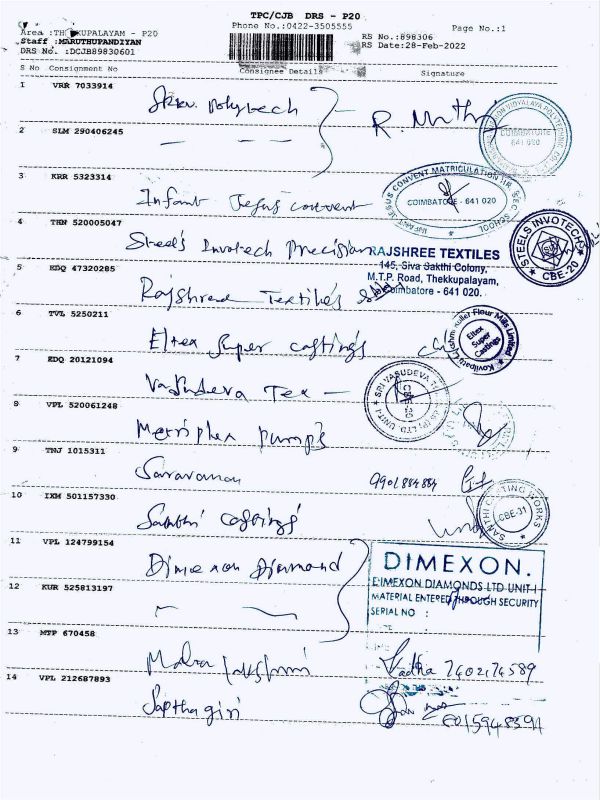 TPC/CJB DRS - P20
Area :THEKKUPALAYAM - P20
Phone No.:0422-3505555
Page No.:1
Staff :MARUTHUPANDIYAN
RS No.:898306
DRS No. :DCJB89830601
RS Date:28-Feb-2022
S No Consignment No Consignee Details Signature
1 VRR 7033914
polytech
R.
COIMBATORE
641 020
2 SLM 290406245
— — —
3 KRR 5323314
Infant Jesus convent
INFANT JESUS CONVENT MATRICULATION HR. SEC. SCHOOL
COIMBATORE - 641 020
4 THN 520005047
Steels Invotech Precision
STEELS INVOTECH
CBE-20
RAJSHREE TEXTILES
145, Siva Sakthi Colony,
M.T.P. Road, Thekkupalayam,
Coimbatore - 641 020.
5 EDQ 47320285
Rajshree Textiles
6 TVL 5250211
Eltex Super castings
Eltex
Super
Castings
7 EDQ 20121094
Vasudeva Tex —
SRI VASUDEVA
CBE-20
8 VPL 520061248
Metriplex pumps
9 TNJ 1015311
Saravanan
10 IXM 501157330
Sakthi castings
SAKTHI CASTING WORKS
CBE-31
11 VPL 124799154
Dimexon Diamond
DIMEXON.
DIMEXON DIAMONDS LTD UNIT-I
MATERIAL ENTERED THROUGH SECURITY
SERIAL NO :
12 KUR 525813197
13 MTP 670458
Maha lakshmi
Radha 7402174589
14 VPL 212687893
Sapthagiri